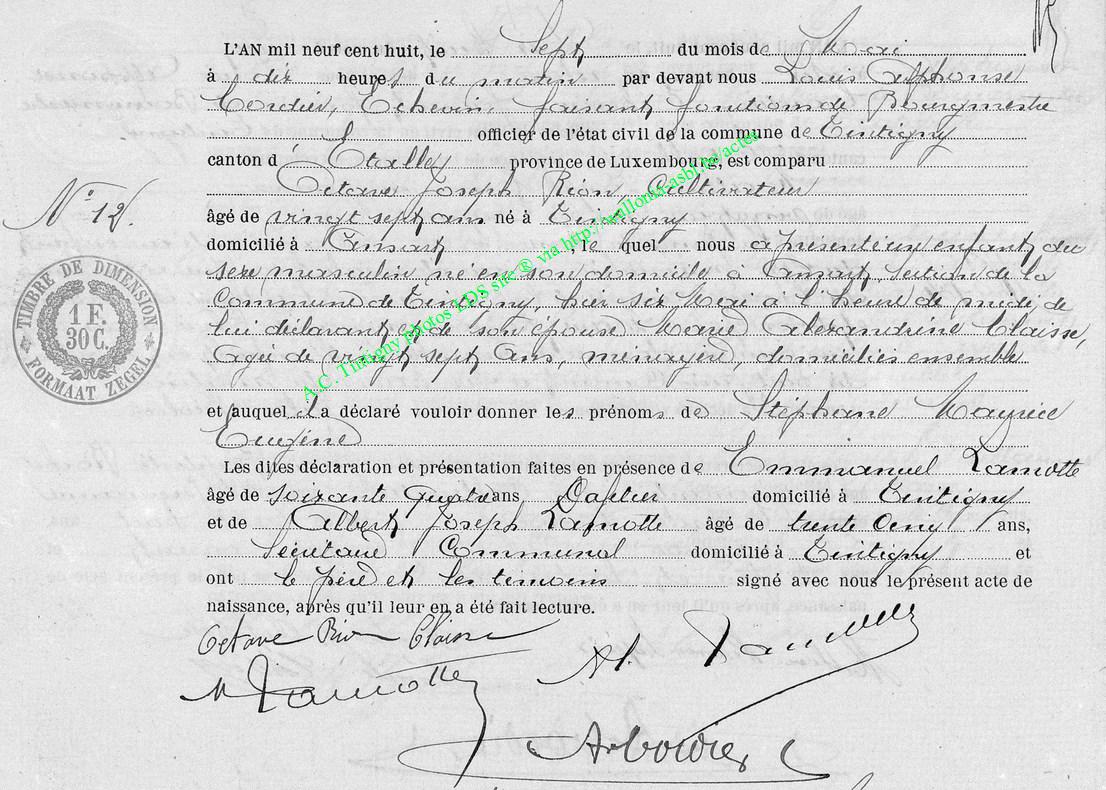 L'AN mil neuf cent huit, le Sept du mois de Mai
à dix heures du matin par devant nous Louis Alphonse
Cordier, Echevin faisant fonctions de Bourgmestre
officier de l'état civil de la commune de Tintigny
canton d'Etalle province de Luxembourg, est comparu
Octave Joseph Rion, Cultivateur
N° 12.
âgé de vingt sept ans né à Tintigny
domicilié à Ansart, le quel nous a présenté un enfant du
sexe masculin né en son domicile à Ansart, section de la
Commune de Tintigny, hier six Mai à l'heure de midi, de
lui déclarant et de son épouse Marie Alexandrine Claisse,
Agée de vingt sept ans, ménagère, domiciliés ensemble
TIMBRE DE DIMENSION
1 F.
30 C.
FORMAAT ZEGEL
et auquel il a déclaré vouloir donner les prénoms de Stéphane Maurice
Eugène
Les dites déclaration et présentation faites en présence de Emmanuel Lamotte
âgé de soixante quatre ans, domicilié à Tintigny
et de Albert Joseph Lamotte âgé de trente cinq ans,
Secrétaire Communal domicilié à Tintigny et
ont le père et les témoins signé avec nous le présent acte de
naissance, après qu'il leur en a été fait lecture.
Octave Rion Claisse
Lamotte
A.C. Tintigny photos LDS site ® via http://wallonia-asbl.be/actes